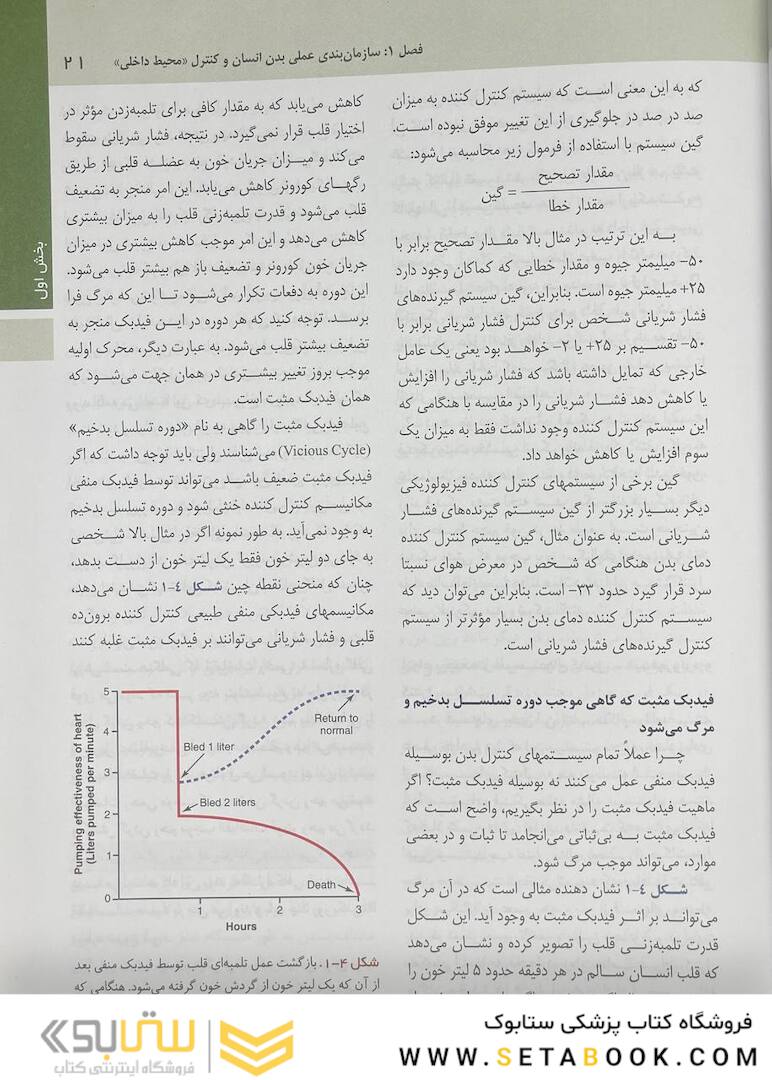 فصل ۱: سازمان‌بندی عملی بدن انسان و کنترل «محیط داخلی» ۲۱
بخش اول
که به این معنی است که سیستم کنترل کننده به میزان
صد در صد در جلوگیری از این تغییر موفق نبوده است.
گین سیستم با استفاده از فرمول زیر محاسبه می‌شود:
مقدار تصحیح
گین =
مقدار خطا
به این ترتیب در مثال بالا مقدار تصحیح برابر با
۵۰- میلیمتر جیوه و مقدار خطایی که کماکان وجود دارد
۲۵+ میلیمتر جیوه است. بنابراین، گین سیستم گیرنده‌های
فشار شریانی شخص برای کنترل فشار شریانی برابر با
۵۰- تقسیم بر ۲۵+ یا ۲- خواهد بود یعنی یک عامل
خارجی که تمایل داشته باشد که فشار شریانی را افزایش
یا کاهش دهد فشار شریانی را در مقایسه با هنگامی که
این سیستم کنترل کننده وجود نداشت فقط به میزان یک
سوم افزایش یا کاهش خواهد داد.
گین برخی از سیستمهای کنترل کننده فیزیولوژیکی
دیگر بسیار بزرگتر از گین سیستم گیرنده‌های فشار
شریانی است. به عنوان مثال، گین سیستم کنترل کننده
دمای بدن هنگامی که شخص در معرض هوای نسبتا
سرد قرار گیرد حدود ۳۳- است. بنابراین می‌توان دید که
سیستم کنترل کننده دمای بدن بسیار مؤثرتر از سیستم
کنترل گیرنده‌های فشار شریانی است.
فیدبک مثبت که گاهی موجب دوره تسلسل بدخیم و
مرگ می‌شود
چرا عملاً تمام سیستمهای کنترل بدن بوسیله
فیدبک منفی عمل می‌کنند نه بوسیله فیدبک مثبت؟ اگر
ماهیت فیدبک مثبت را در نظر بگیریم، واضح است که
فیدبک مثبت به بی‌ثباتی می‌انجامد تا ثبات و در بعضی
موارد، می‌تواند موجب مرگ شود.
شکل ۴-۱ نشان دهنده مثالی است که در آن مرگ
می‌تواند بر اثر فیدبک مثبت به وجود آید. این شکل
قدرت تلمبه‌زنی قلب را تصویر کرده و نشان می‌دهد
که قلب انسان سالم در هر دقیقه حدود ۵ لیتر خون را
کاهش می‌یابد که به مقدار کافی برای تلمبه‌زدن مؤثر در
اختیار قلب قرار نمی‌گیرد. در نتیجه، فشار شریانی سقوط
می‌کند و میزان جریان خون به عضله قلبی از طریق
رگهای کورونر کاهش می‌یابد. این امر منجر به تضعیف
قلب می‌شود و قدرت تلمبه‌زنی قلب را به میزان بیشتری
کاهش می‌دهد و این امر موجب کاهش بیشتری در میزان
جریان خون کورونر و تضعیف باز هم بیشتر قلب می‌شود.
این دوره به دفعات تکرار می‌شود تا این که مرگ فرا
برسد. توجه کنید که هر دوره در این فیدبک منجر به
تضعیف بیشتر قلب می‌شود. به عبارت دیگر، محرک اولیه
موجب بروز تغییر بیشتری در همان جهت می‌شود که
همان فیدبک مثبت است.
فیدبک مثبت را گاهی به نام «دوره تسلسل بدخیم»
(Vicious Cycle) می‌شناسند ولی باید توجه داشت که اگر
فیدبک مثبت ضعیف باشد می‌تواند توسط فیدبک منفی
مکانیسم کنترل کننده خنثی شود و دوره تسلسل بدخیم
به وجود نمی‌آید. به طور نمونه اگر در مثال بالا شخصی
به جای دو لیتر خون فقط یک لیتر خون از دست بدهد،
چنان که منحنی نقطه چین شکل ۴-۱ نشان می‌دهد،
مکانیسمهای فیدبکی منفی طبیعی کنترل کننده برون‌ده
قلبی و فشار شریانی می‌توانند بر فیدبک مثبت غلبه کنند
Pumping effectiveness of heart
(Liters pumped per minute)
5
4
3
2
1
0
Return to
normal
Bled 1 liter
Bled 2 liters
Death
1 2 3
Hours
شکل ۴-۱. بازگشت عمل تلمبه‌ای قلب توسط فیدبک منفی بعد
از آن که یک لیتر خون از گردش خون گرفته می‌شود. هنگامی که
فروشگاه کتاب پزشکی ستابوک
WWW.SETABOOK.COM
ستابوک
فروشگاه اینترنتی کتاب